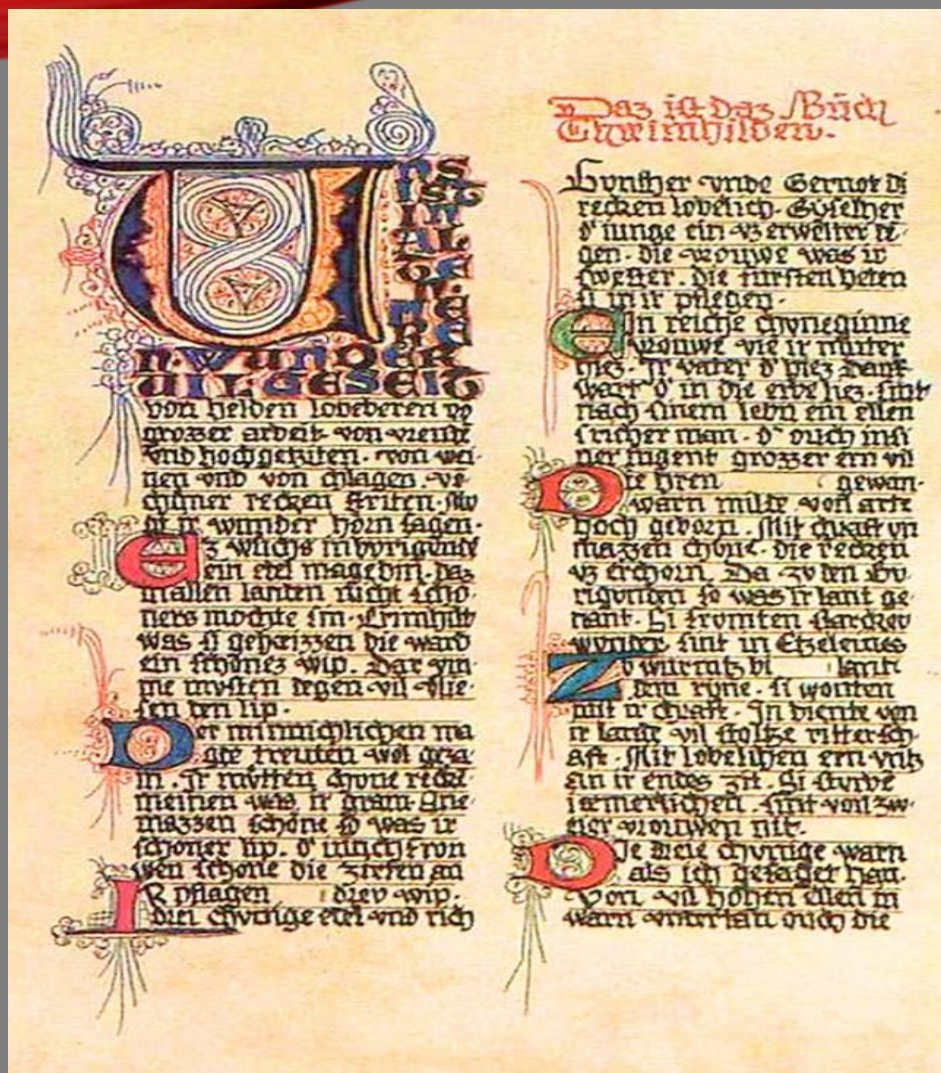 UNS
IST
IN
ALT
EN
MERE
N·WUNDER
UIL·GESEIT
von helden lobeberen vo
grozzer arbeit· von vreude
vnd hochgetziten· von wei
nen vnd von chlagen· ve
chuner recken striten· Mv
gt ir wunder horn sagen·
Ez wuchs inburigunde
ein etel magedin· daz
inallen lanten nicht scho
ners mochte sin· Crimhilt
was si geheizzen die ward
ein schonez wip. Dar vm
me mvsten degen vil vlie
sen den lip·
Der minnichlichen ma
gte treuten wol geza
m· Ir mvtten chone recke
meinen was ir gram· Ane
mazzen schone so was ir
schoner lip· d' ivnchfron
wen schone die zirten an
IR pflagen drey wip·
drei chvnige etel vnd rich
Daz ist daz Bůch
Chreimhilden·
Gvnther vnde Gernot di
recken lobelich· Gyselher
d' iunge ein vz erwelter de
gen· die vrouwe was ir
swester· die fursten heten
si in ir pflegen·
Ein reiche chvneginne
vrouwe vte ir muter
hiez· Ir vater d' hiez Dank
wart d' in die erbe liez· sint
nach sinem lebn ein ellen
tricher man· d' ouch insi
ner iugent grozzer ern vil
Die hren gewan·
warn milte von arte
hoch geborn· Mit chraft vn
mazzen chvne· die recken
vz erchorn· Da zv den Bv
rigunden so was ir lant ge
nant· Si fromten starckev
wunder sint in Etzeleines
Zv wurmtz bi lant
dem ryne· si wonten
mit ir chraft· In diente von
ir lande vil stoltze rittersch
aft· Mit lobelichen ern vntz
an ir endes zit· Si sturbe
iemerlichen· sint von zw
eier vrouwen nit·
Die drie chvnige warn
als ich gesaget han·
Von vil hohen ellen in
warn vntertan ouch die